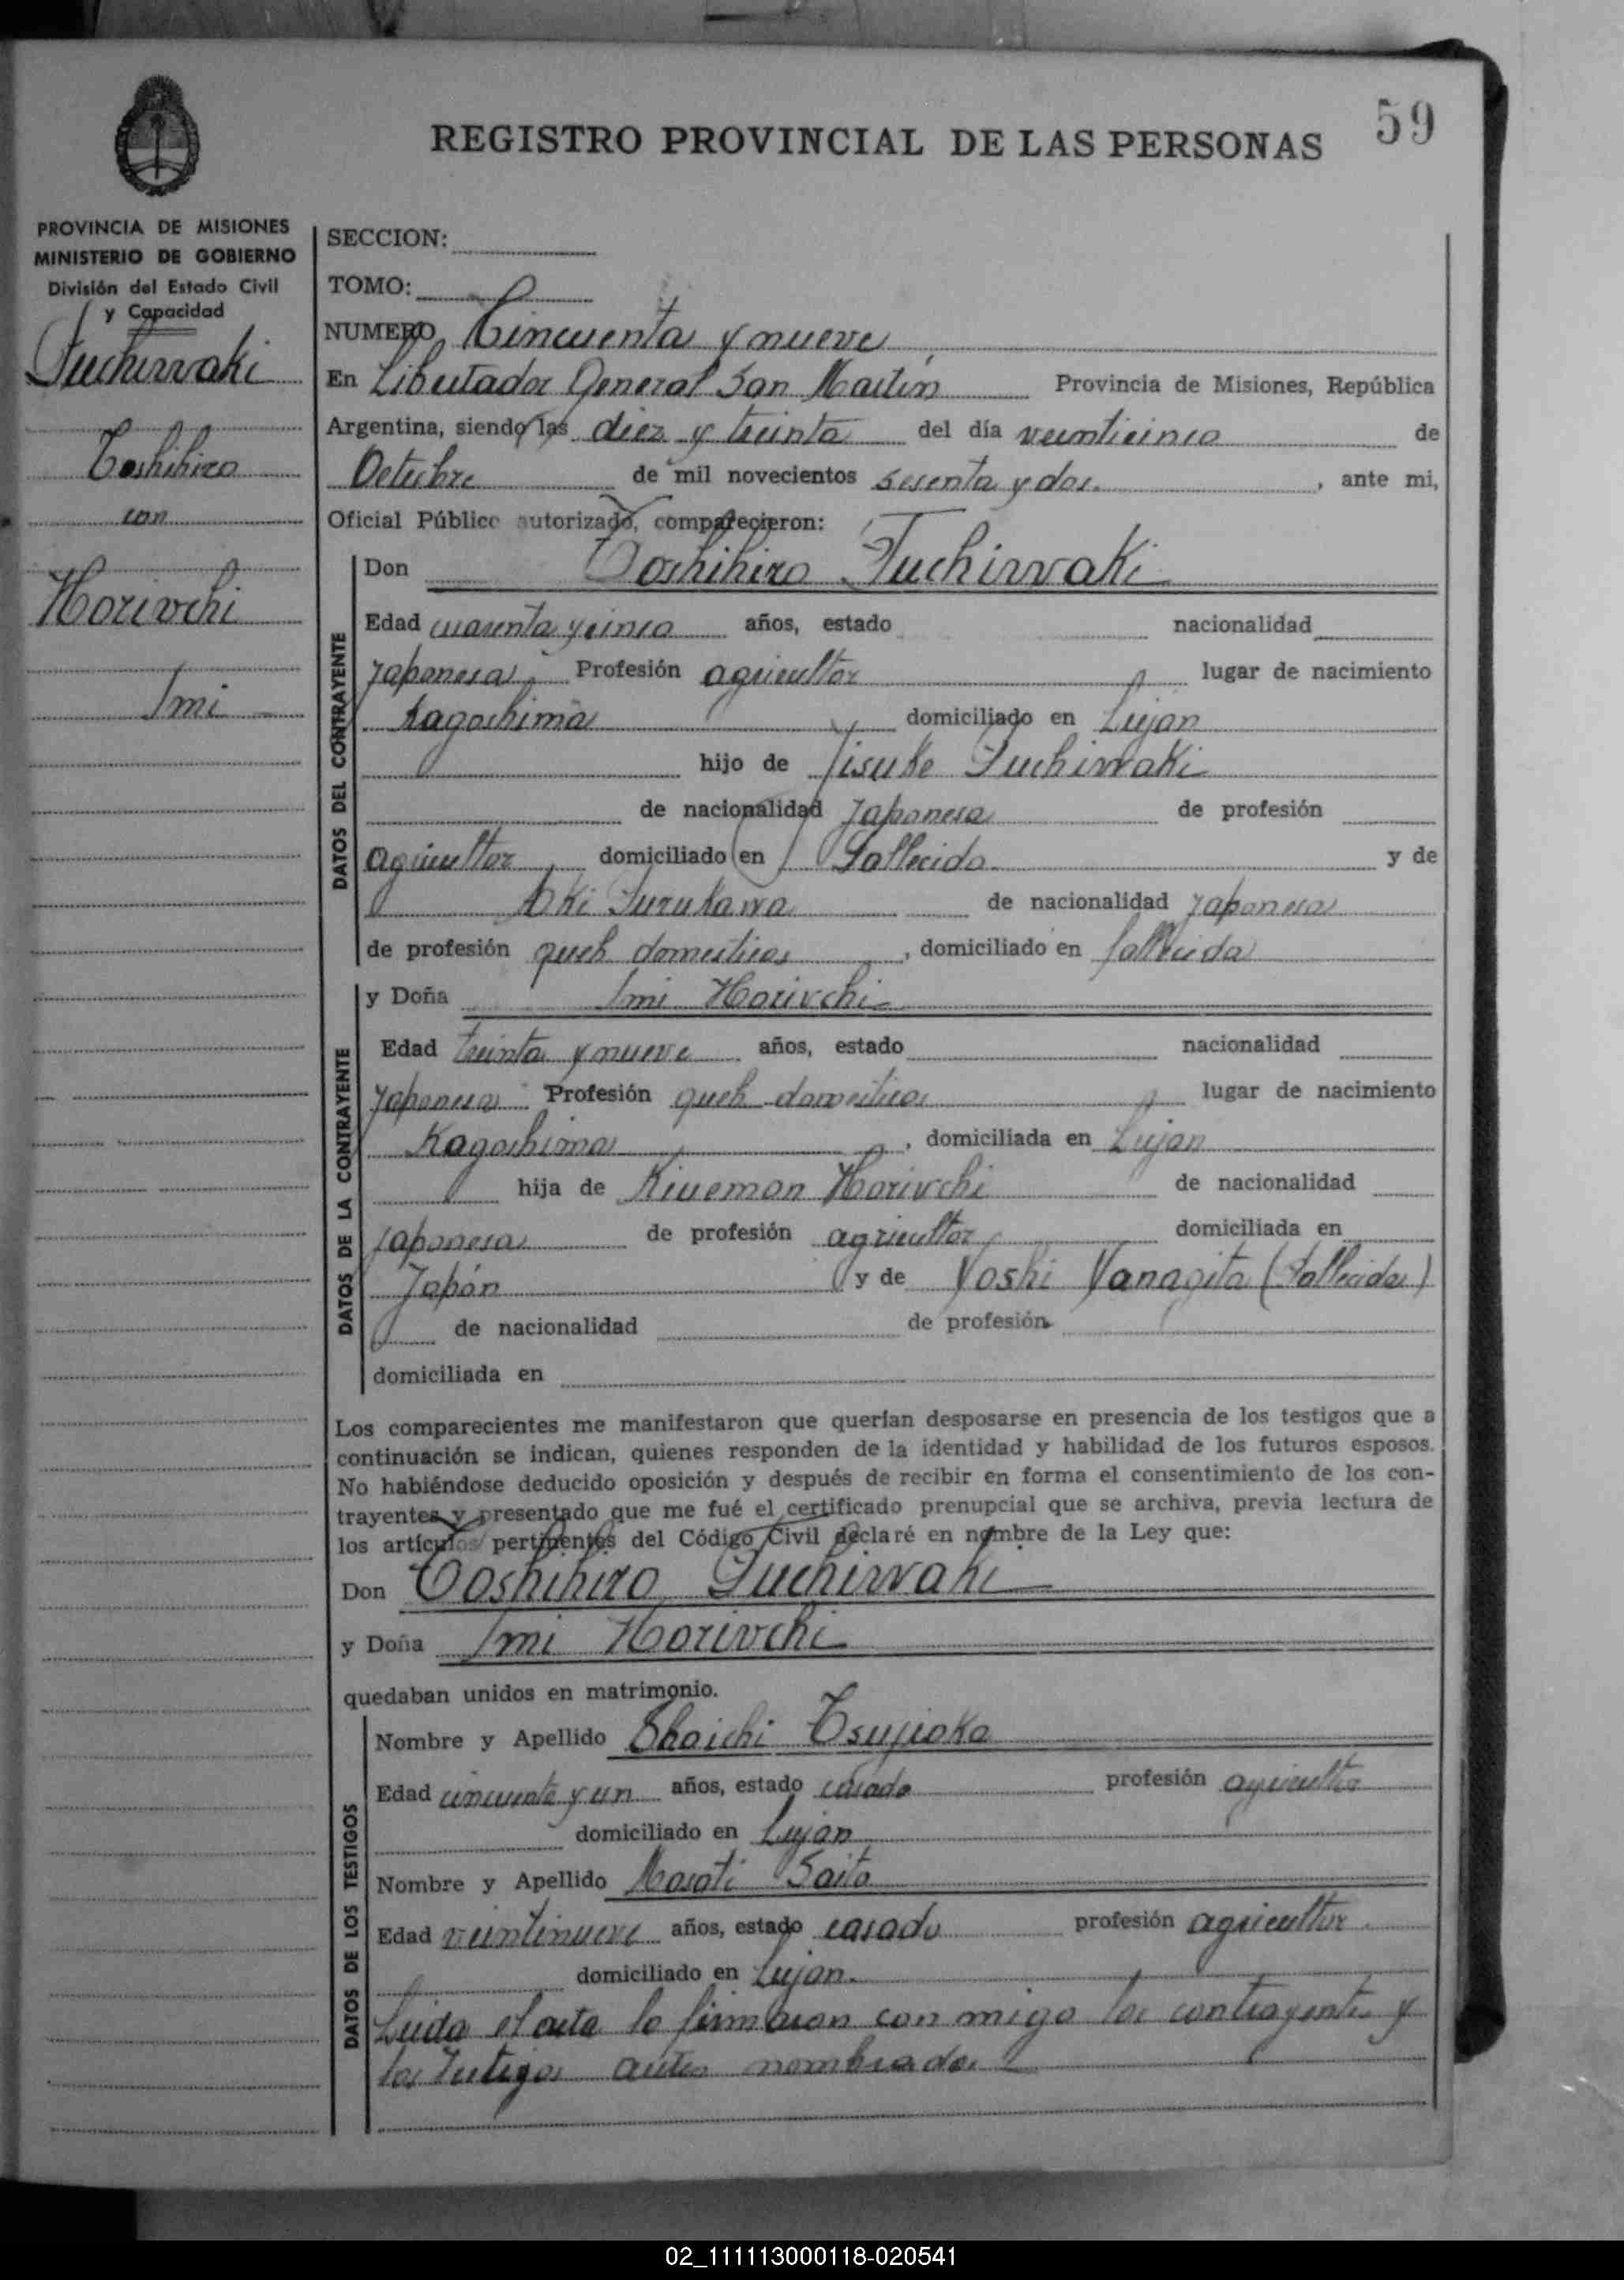 59
REGISTRO PROVINCIAL DE LAS PERSONAS
PROVINCIA DE MISIONES
MINISTERIO DE GOBIERNO
División del Estado Civil
y Capacidad
Fuchiwaki
Toshihiro
con
Horivchi
Imi
SECCION:
TOMO:
NUMERO Cincuenta y nueve
En Libertador General San Martín Provincia de Misiones, República
Argentina, siendo las diez y treinta del día veinticinco de
Octubre de mil novecientos sesenta y dos. , ante mi,
Oficial Público autorizado, comparecieron:
DATOS DEL CONTRAYENTE
Don Toshihiro Fuchiwaki
Edad cuarenta y cinco años, estado nacionalidad
japonesa, Profesión agricultor lugar de nacimiento
Kagoshima domiciliado en Lujan
hijo de Jisuke Fuchiwaki
de nacionalidad Japonesa de profesión
agricultor domiciliado en Fallecido y de
Aki Furukawa de nacionalidad japonesa
de profesión queh domesticos , domiciliado en fallecida
DATOS DE LA CONTRAYENTE
y Doña Imi Horivchi
Edad treinta y nueve años, estado nacionalidad
japonesa Profesión queh domesticos lugar de nacimiento
Kagoshima , domiciliada en Lujan
hija de Kiuemon Horivchi de nacionalidad
japonesa de profesión agricultor domiciliada en
Japón y de Yoshi Yanagita (Fallecida)
de nacionalidad de profesión
domiciliada en
Los comparecientes me manifestaron que querían desposarse en presencia de los testigos que a
continuación se indican, quienes responden de la identidad y habilidad de los futuros esposos.
No habiéndose deducido oposición y después de recibir en forma el consentimiento de los con-
trayentes y presentado que me fué el certificado prenupcial que se archiva, previa lectura de
los artículos pertinentes del Código Civil declaré en nombre de la Ley que:
Don Toshihiro Fuchiwaki
y Doña Imi Horivchi
quedaban unidos en matrimonio.
DATOS DE LOS TESTIGOS
Nombre y Apellido Shoichi Tsujioka
Edad cincuenta y un años, estado casado profesión agricultor
domiciliado en Lujan
Nombre y Apellido Masati Saito
Edad veintinueve años, estado casado profesión agricultor
domiciliado en Lujan.
Leida el acta la firmaron con migo los contrayentes y
los testigos antes nombrados
02_111113000118-020541